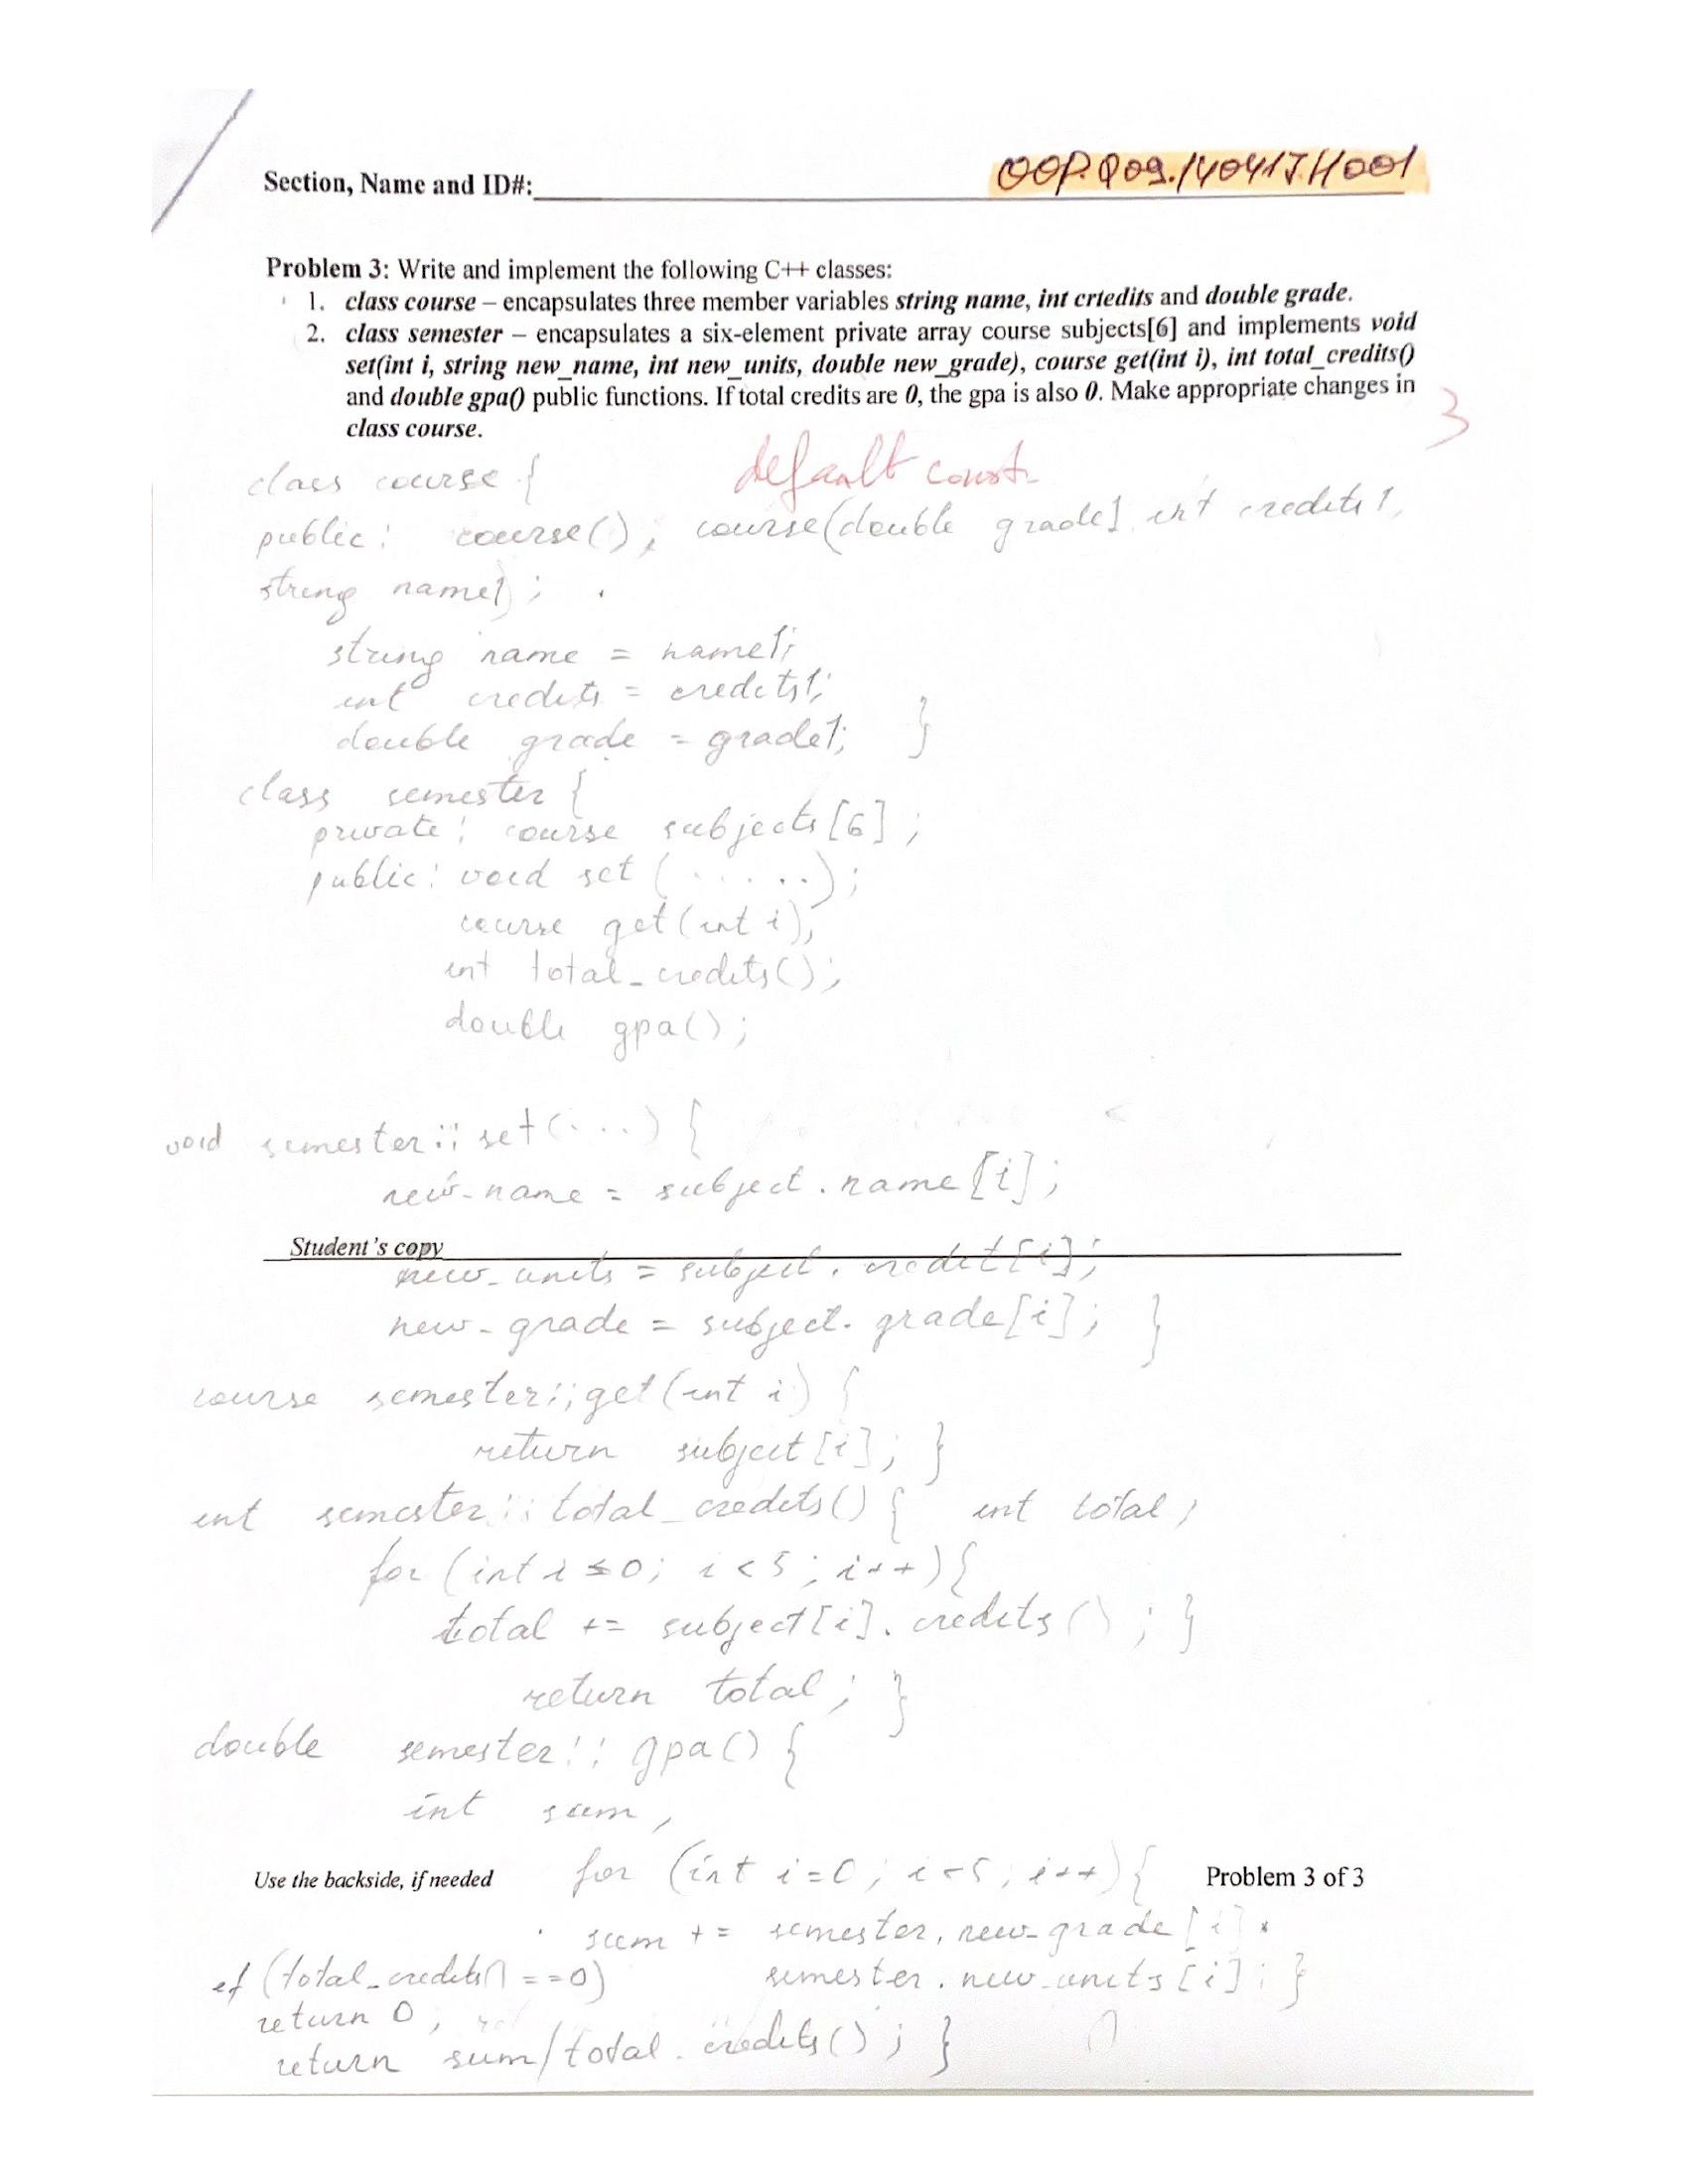 Section, Name and ID#: OOP.Q09.140417.H001
Problem 3: Write and implement the following C++ classes:
1. class course – encapsulates three member variables string name, int crtedits and double grade.
2. class semester – encapsulates a six-element private array course subjects[6] and implements void
set(int i, string new_name, int new_units, double new_grade), course get(int i), int total_credits()
and double gpa() public functions. If total credits are 0, the gpa is also 0. Make appropriate changes in
class course.
3
default const.
class course {
public: course(); course(double grade1, int credits1,
string name1);
string name = name1;
int credits = credits1;
double grade = grade1; }
class semester {
private: course subjects[6];
public: void set(.....);
course get(int i);
int total_credits();
double gpa();
void semester::set(...) {
new_name = subject.name[i];
Student's copy
new_units = subject.credit[i];
new_grade = subject.grade[i]; }
course semester::get(int i) {
return subject[i]; }
int semester::total_credits() { int total;
for (int i=0; i<5; i++){
total += subject[i].credits(); }
return total; }
double semester::gpa() {
int sum,
for (int i=0; i<5; i++){
Use the backside, if needed
Problem 3 of 3
sum += semester.new_grade[i] *
semester.new_units[i]; }
if (total_credits() ==0)
return 0,
return sum/total_credits(); }